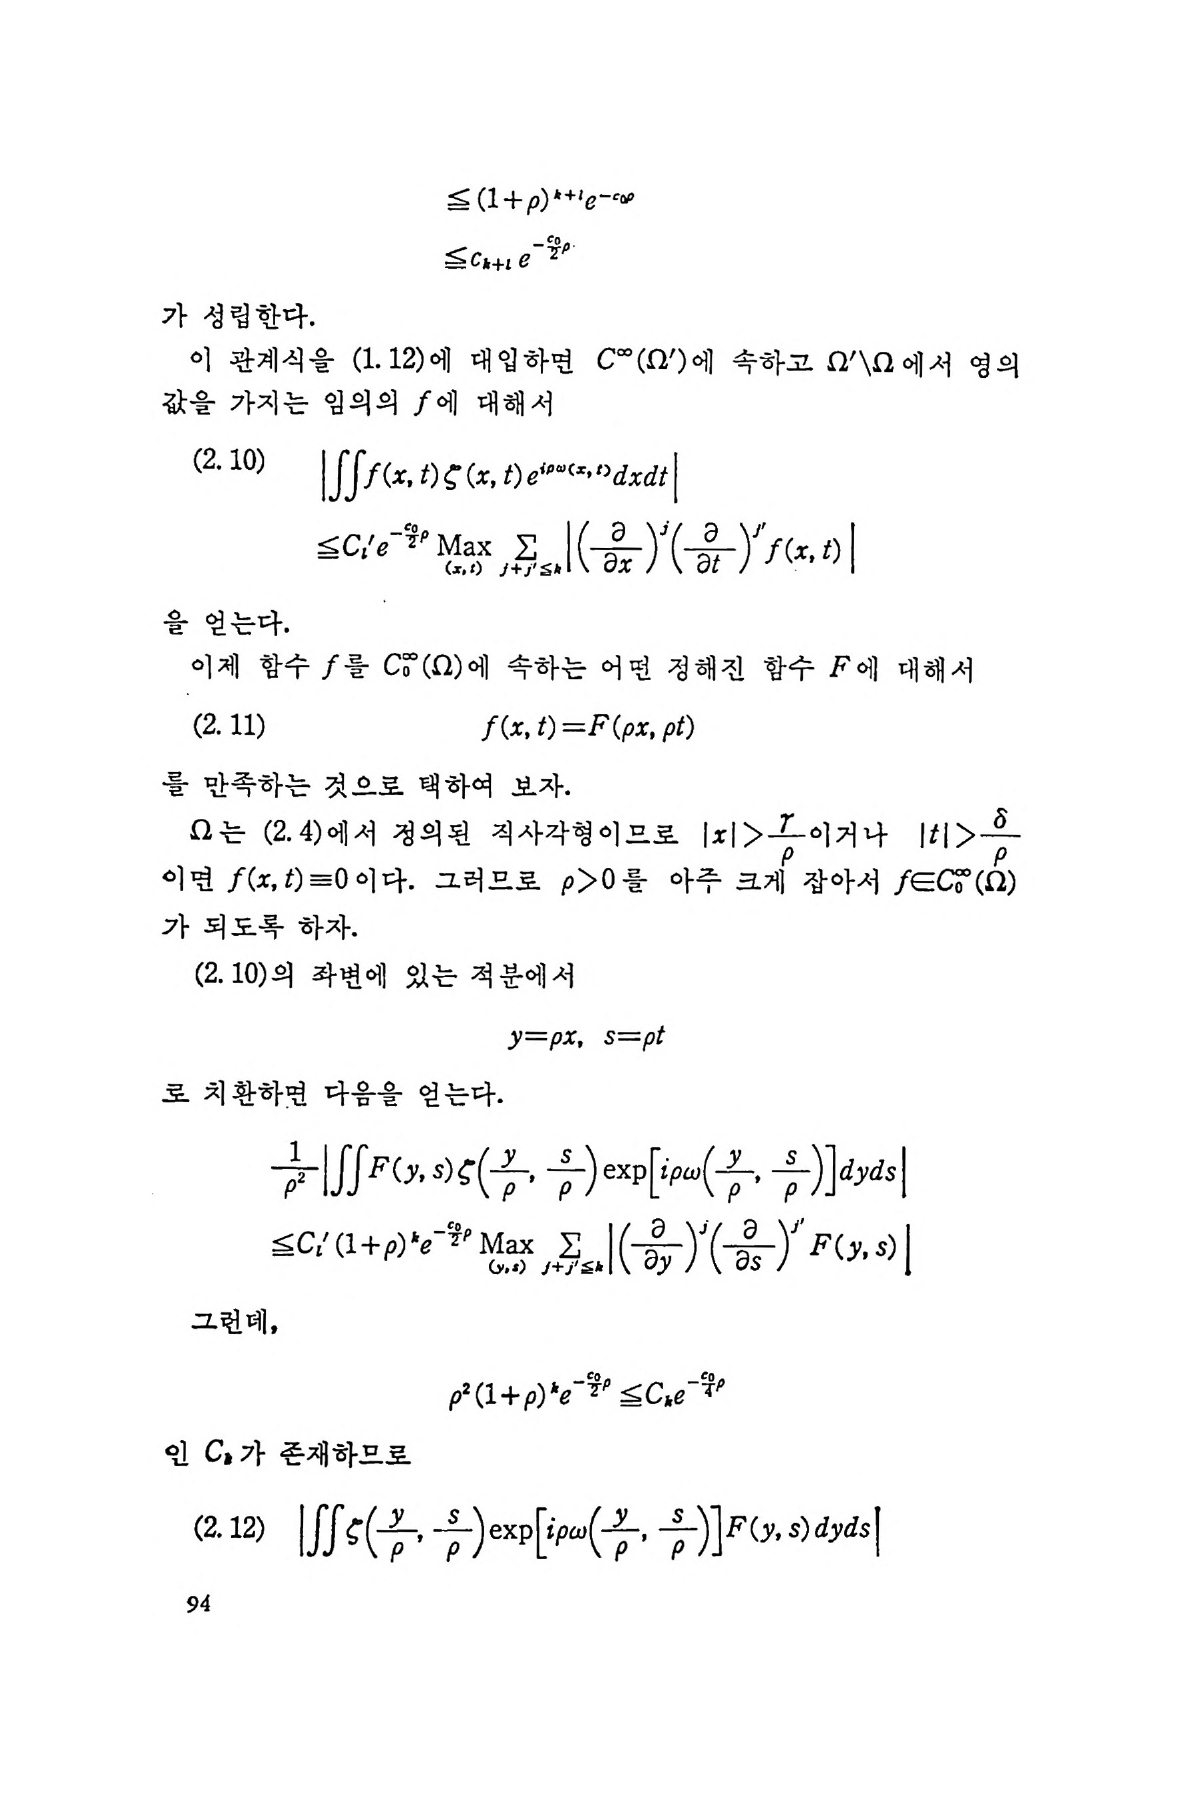 ≦(1+ρ)^{k+l}e^{-c₀ρ}
≦c_{k+l} e^{-\frac{c₀}{2}ρ}
가 성립한다.
이 관계식을 (1.12)에 대입하면 C^∞(Ω′)에 속하고 Ω′\Ω에서 영의
값을 가지는 임의의 f에 대해서
(2.10) |∬f(x, t)ζ(x, t)e^{iρω(x, t)}dxdt|
≦C_l′e^{-\frac{c₀}{2}ρ} Max_{(x,t)} Σ_{j+j′≤k}|(∂/∂x)^j(∂/∂t)^{j′}f(x, t)|
을 얻는다.
이제 함수 f를 C₀^∞(Ω)에 속하는 어떤 정해진 함수 F에 대해서
(2.11) f(x, t)=F(ρx, ρt)
를 만족하는 것으로 택하여 보자.
Ω는 (2.4)에서 정의된 직사각형이므로 |x|>γ/ρ이거나 |t|>δ/ρ
이면 f(x, t)≡0이다. 그러므로 ρ>0를 아주 크게 잡아서 f∈C₀^∞(Ω)
가 되도록 하자.
(2.10)의 좌변에 있는 적분에서
y=ρx, s=ρt
로 치환하면 다음을 얻는다.
1/ρ²|∬F(y, s)ζ(y/ρ, s/ρ)exp[iρω(y/ρ, s/ρ)]dyds|
≦C_l′(1+ρ)^k e^{-\frac{c₀}{2}ρ} Max_{(y,s)} Σ_{j+j′≤k}|(∂/∂y)^j(∂/∂s)^{j′}F(y, s)|
그런데,
ρ²(1+ρ)^k e^{-\frac{c₀}{2}ρ}≦C_k e^{-\frac{c₀}{4}ρ}
인 C_k가 존재하므로
(2.12) |∬ζ(y/ρ, s/ρ)exp[iρω(y/ρ, s/ρ)]F(y, s)dyds|
94